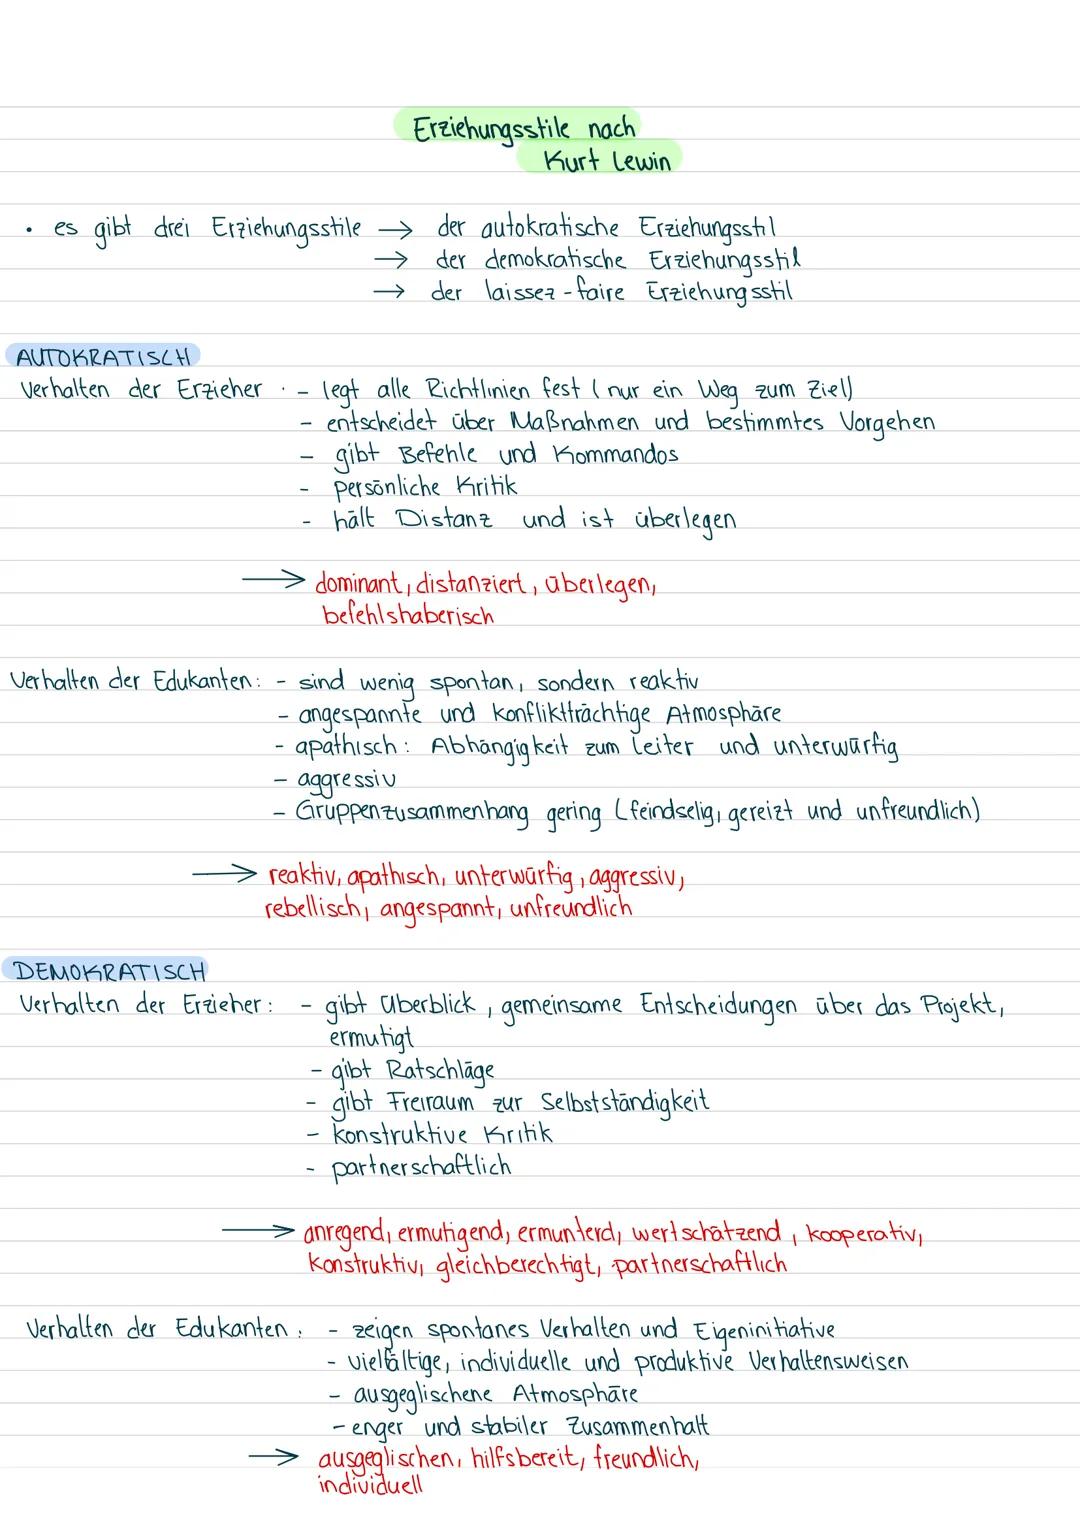 Erziehungsstile nach
Kurt Lewin
• es gibt drei Erziehungsstile → der autokratische Erziehungsstil
→ der demokratische Erziehungsstil
→ der laissez-faire Erziehungsstil
AUTOKRATISCH
Verhalten der Erzieher : - legt alle Richtlinien fest ( nur ein Weg zum Ziel)
- entscheidet über Maßnahmen und bestimmtes Vorgehen
- gibt Befehle und Kommandos
- persönliche Kritik
- hält Distanz und ist überlegen
→ dominant, distanziert, überlegen,
befehlshaberisch
Verhalten der Edukanten: - sind wenig spontan, sondern reaktiv
- angespannte und konfliktträchtige Atmosphäre
- apathisch: Abhängigkeit zum Leiter und unterwürfig
- aggressiv
- Gruppenzusammenhang gering (feindselig, gereizt und unfreundlich)
→ reaktiv, apathisch, unterwürfig, aggressiv,
rebellisch, angespannt, unfreundlich
DEMOKRATISCH
Verhalten der Erzieher: - gibt Überblick, gemeinsame Entscheidungen über das Projekt,
ermutigt
- gibt Ratschläge
- gibt Freiraum zur Selbstständigkeit
- konstruktive Kritik
- partnerschaftlich
→ anregend, ermutigend, ermunterd, wertschätzend, kooperativ,
konstruktiv, gleichberechtigt, partnerschaftlich
Verhalten der Edukanten: - zeigen spontanes Verhalten und Eigeninitiative
- vielfältige, individuelle und produktive Verhaltensweisen
- ausgeglischene Atmosphäre
- enger und stabiler Zusammenhalt
→ ausgeglischen, hilfsbereit, freundlich,
individuell